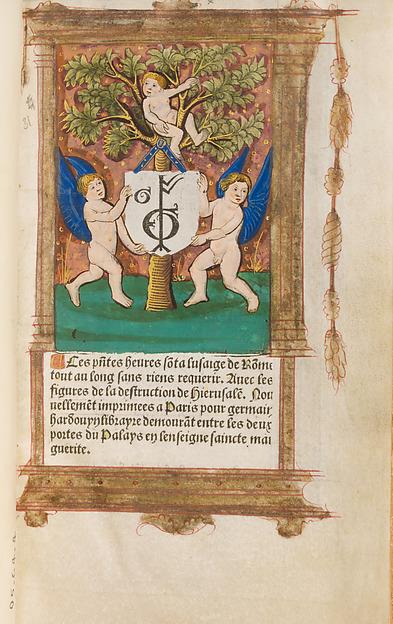 Les pñtes heures sõt a lusaige de Rõme
tout au long sans riens requerir. Avec les
figures de la destruction de Hierusalẽ. Nou
vellemẽt imprimees a Paris pour germain
hardouyn librayre demourãt entre les deux
portes du Palays en lenseigne saincte mar
guerite.